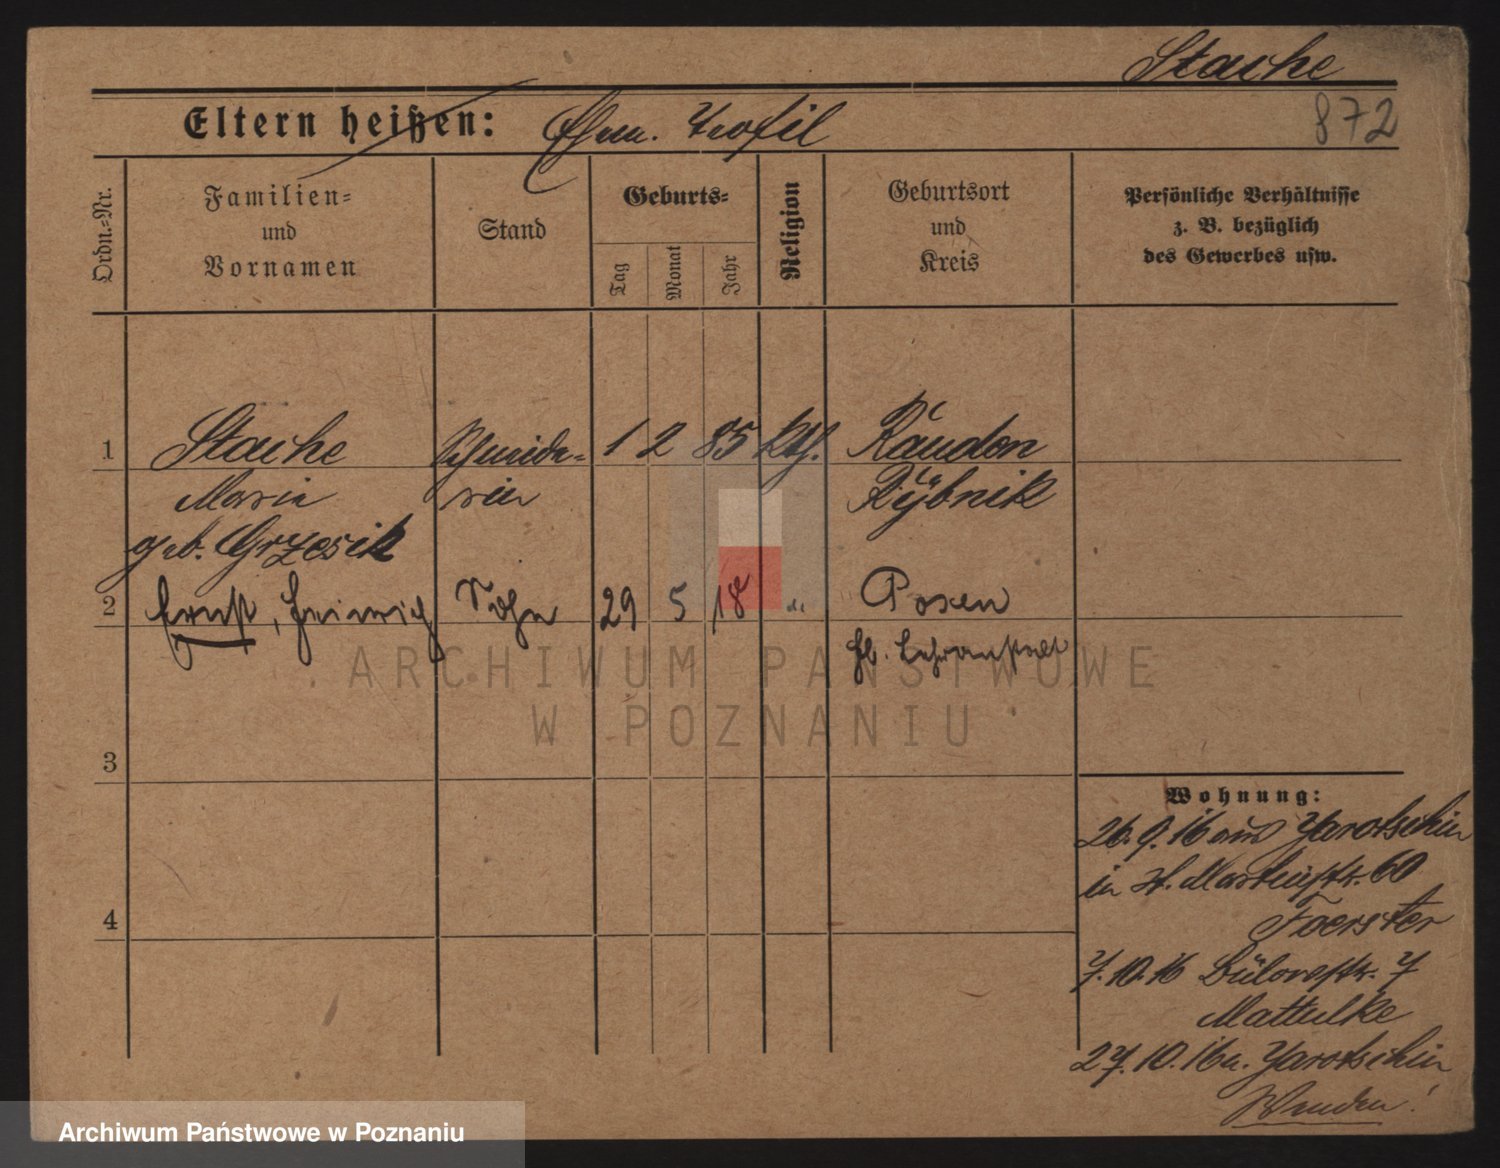 Stache
872
Eltern heißen: Ehem. Teofil
Ordn.-Nr.
Familien-
und
Vornamen
Stand
Geburts-
Tag
Monat
Jahr
Religion
Geburtsort
und
Kreis
Persönliche Verhältnisse
z. B. bezüglich
des Gewerbes usw.
1 Stache Schneide- 1 2 85 kth. Raudon
Maria rin Rybnik
geb. Grzesik
2 Ernst, Heinrich Sohn 29 5 18 Posen
Lehranstalt
3
Wohnung:
26.9.16 aus Jarotschin
in St. Martinstr. 60
Foerster
4
7.10.16 Bülowstr. 7
Mattulke
27.10.16 n. Jarotschin
ARCHIWUM PAŃSTWOWE
W POZNANIU
Archiwum Państwowe w Poznaniu